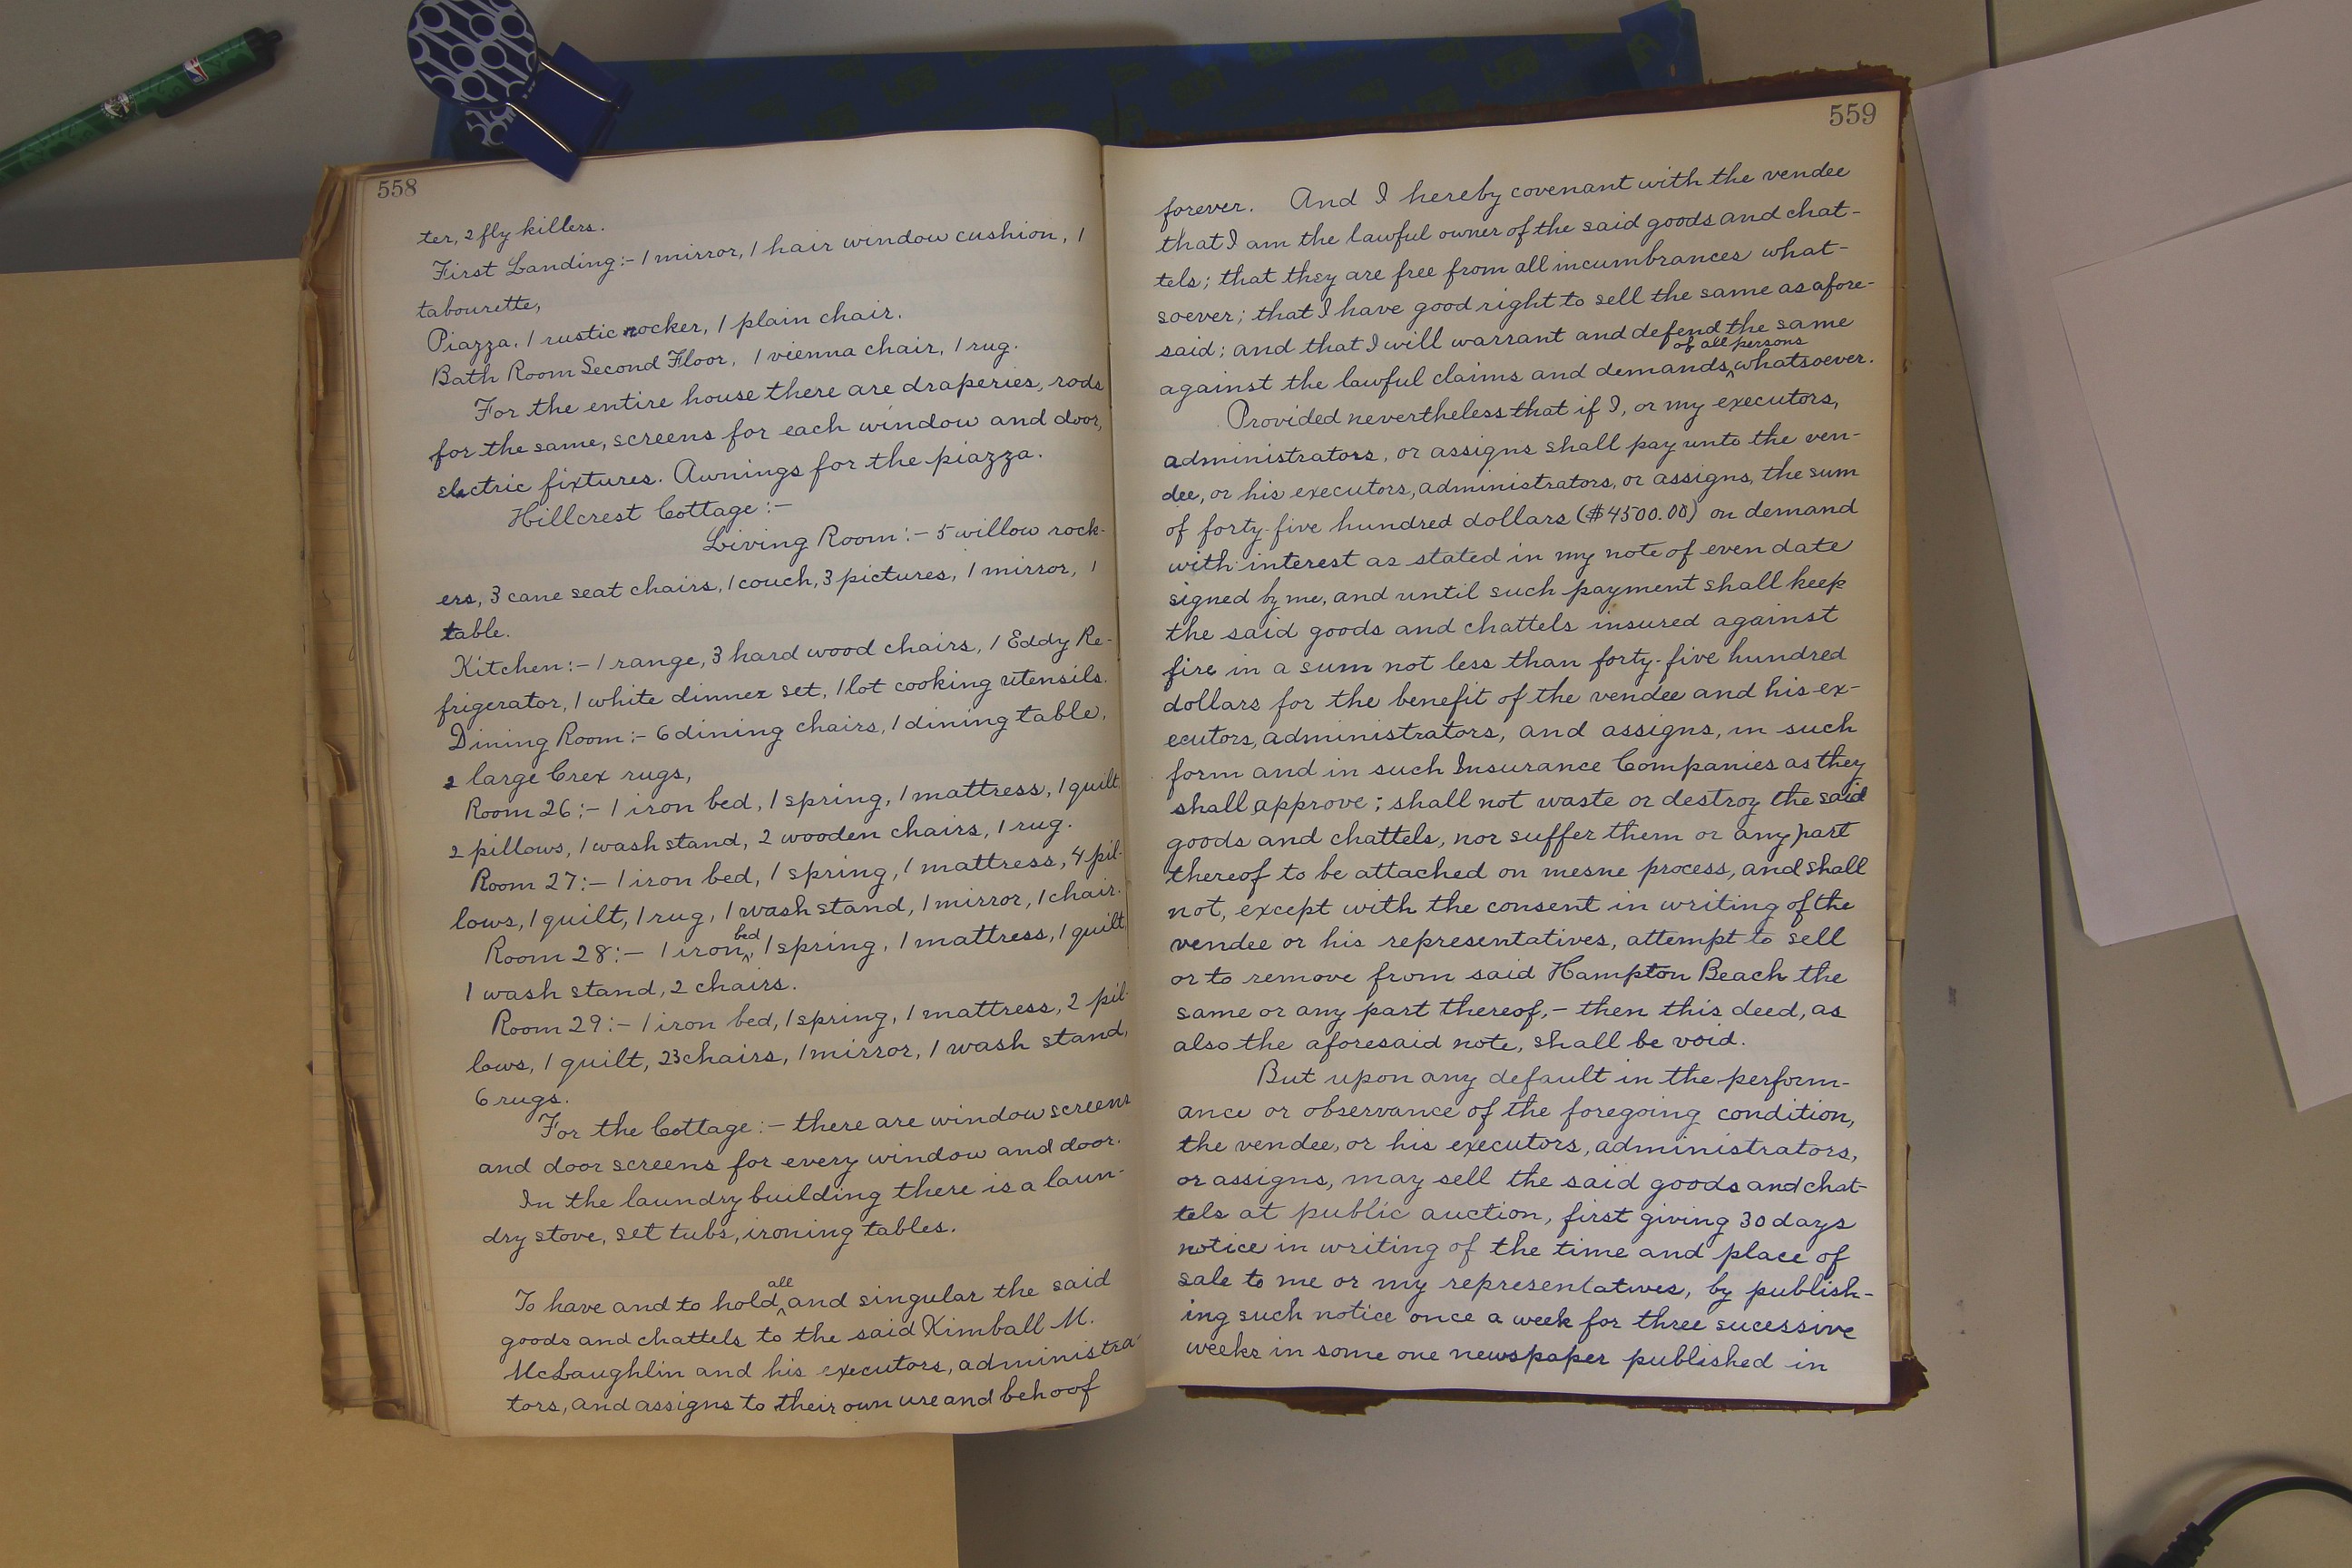 558
ter, 2 fly killers.
First Landing:- 1 mirror, 1 hair window cushion, 1
tabourette,
Piazza, 1 rustic rocker, 1 plain chair.
Bath Room Second Floor, 1 vienna chair, 1 rug.
For the entire house there are draperies, rods
for the same, screens for each window and door,
electric fixtures. Awnings for the piazza.
Hillcrest Cottage:-
Living Room:- 5 willow rock-
ers, 3 cane seat chairs, 1 couch, 3 pictures, 1 mirror, 1
table.
Kitchen:- 1 range, 3 hard wood chairs, 1 Eddy Re-
frigerator, 1 white dinner set, 1 lot cooking utensils.
Dining Room:- 6 dining chairs, 1 dining table,
2 large Crex rugs,
Room 26:- 1 iron bed, 1 spring, 1 mattress, 1 quilt
2 pillows, 1 wash stand, 2 wooden chairs, 1 rug.
Room 27:- 1 iron bed, 1 spring, 1 mattress, 4 pil-
lows, 1 quilt, 1 rug, 1 wash stand, 1 mirror, 1 chair.
Room 28:- 1 iron bed, 1 spring, 1 mattress, 1 quilt
1 wash stand, 2 chairs.
Room 29:- 1 iron bed, 1 spring, 1 mattress, 2 pil-
lows, 1 quilt, 23 chairs, 1 mirror, 1 wash stand,
6 rugs.
For the Cottage:- there are window screens
and door screens for every window and door.
In the laundry building there is a laun-
dry stove, set tubs, ironing tables.
To have and to hold all and singular the said
goods and chattels to the said Kimball M.
McLaughlin and his executors, administra-
tors, and assigns to their own use and behoof
559
forever. And I hereby covenant with the vendee
that I am the lawful owner of the said goods and chat-
tels; that they are free from all incumbrances what-
soever; that I have good right to sell the same as afore-
said; and that I will warrant and defend the same
against the lawful claims and demands of all persons whatsoever.
Provided nevertheless that if I, or my executors,
administrators, or assigns shall pay unto the ven-
dee, or his executors, administrators, or assigns, the sum
of forty-five hundred dollars ($4500.00) on demand
with interest as stated in my note of even date
signed by me, and until such payment shall keep
the said goods and chattels insured against
fire in a sum not less than forty-five hundred
dollars for the benefit of the vendee and his ex-
ecutors, administrators, and assigns, in such
form and in such Insurance Companies as they
shall approve; shall not waste or destroy the said
goods and chattels, nor suffer them or any part
thereof to be attached on mesne process, and shall
not, except with the consent in writing of the
vendee or his representatives, attempt to sell
or to remove from said Hampton Beach the
same or any part thereof,- then this deed, as
also the aforesaid note, shall be void.
But upon any default in the perform-
ance or observance of the foregoing condition,
the vendee, or his executors, administrators,
or assigns, may sell the said goods and chat-
tels at public auction, first giving 30 days
notice in writing of the time and place of
sale to me or my representatives, by publish-
ing such notice once a week for three sucessive
weeks in some one newspaper published in